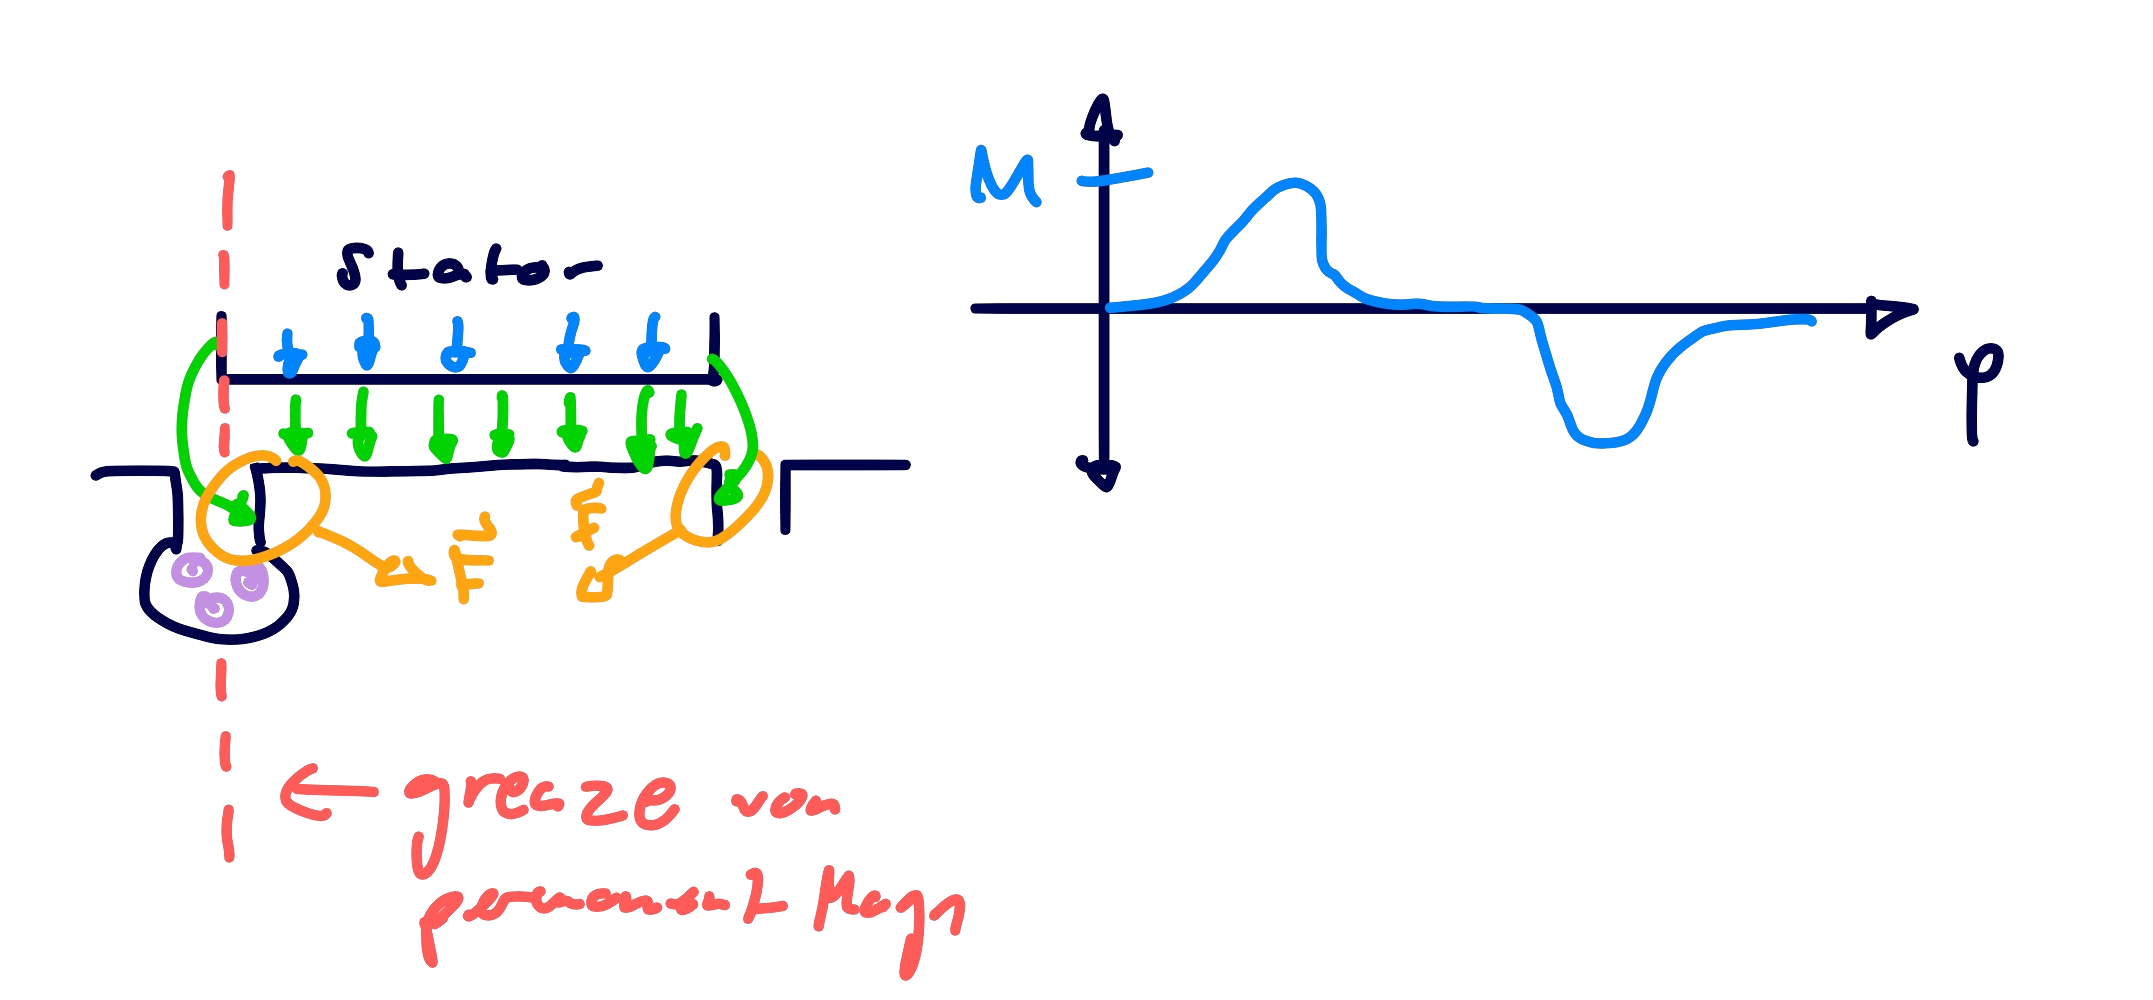 M
Stator
φ
F
F
← grenze von
permanent Magn